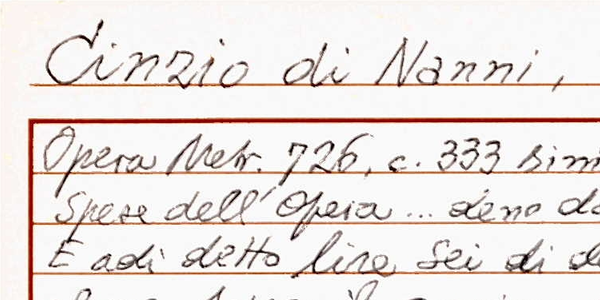 Cinzio di Nanni,
Opera Metr. 726, c. 333 sim
Spese dell'Opera ... deno da
E adi detto lire sei di d